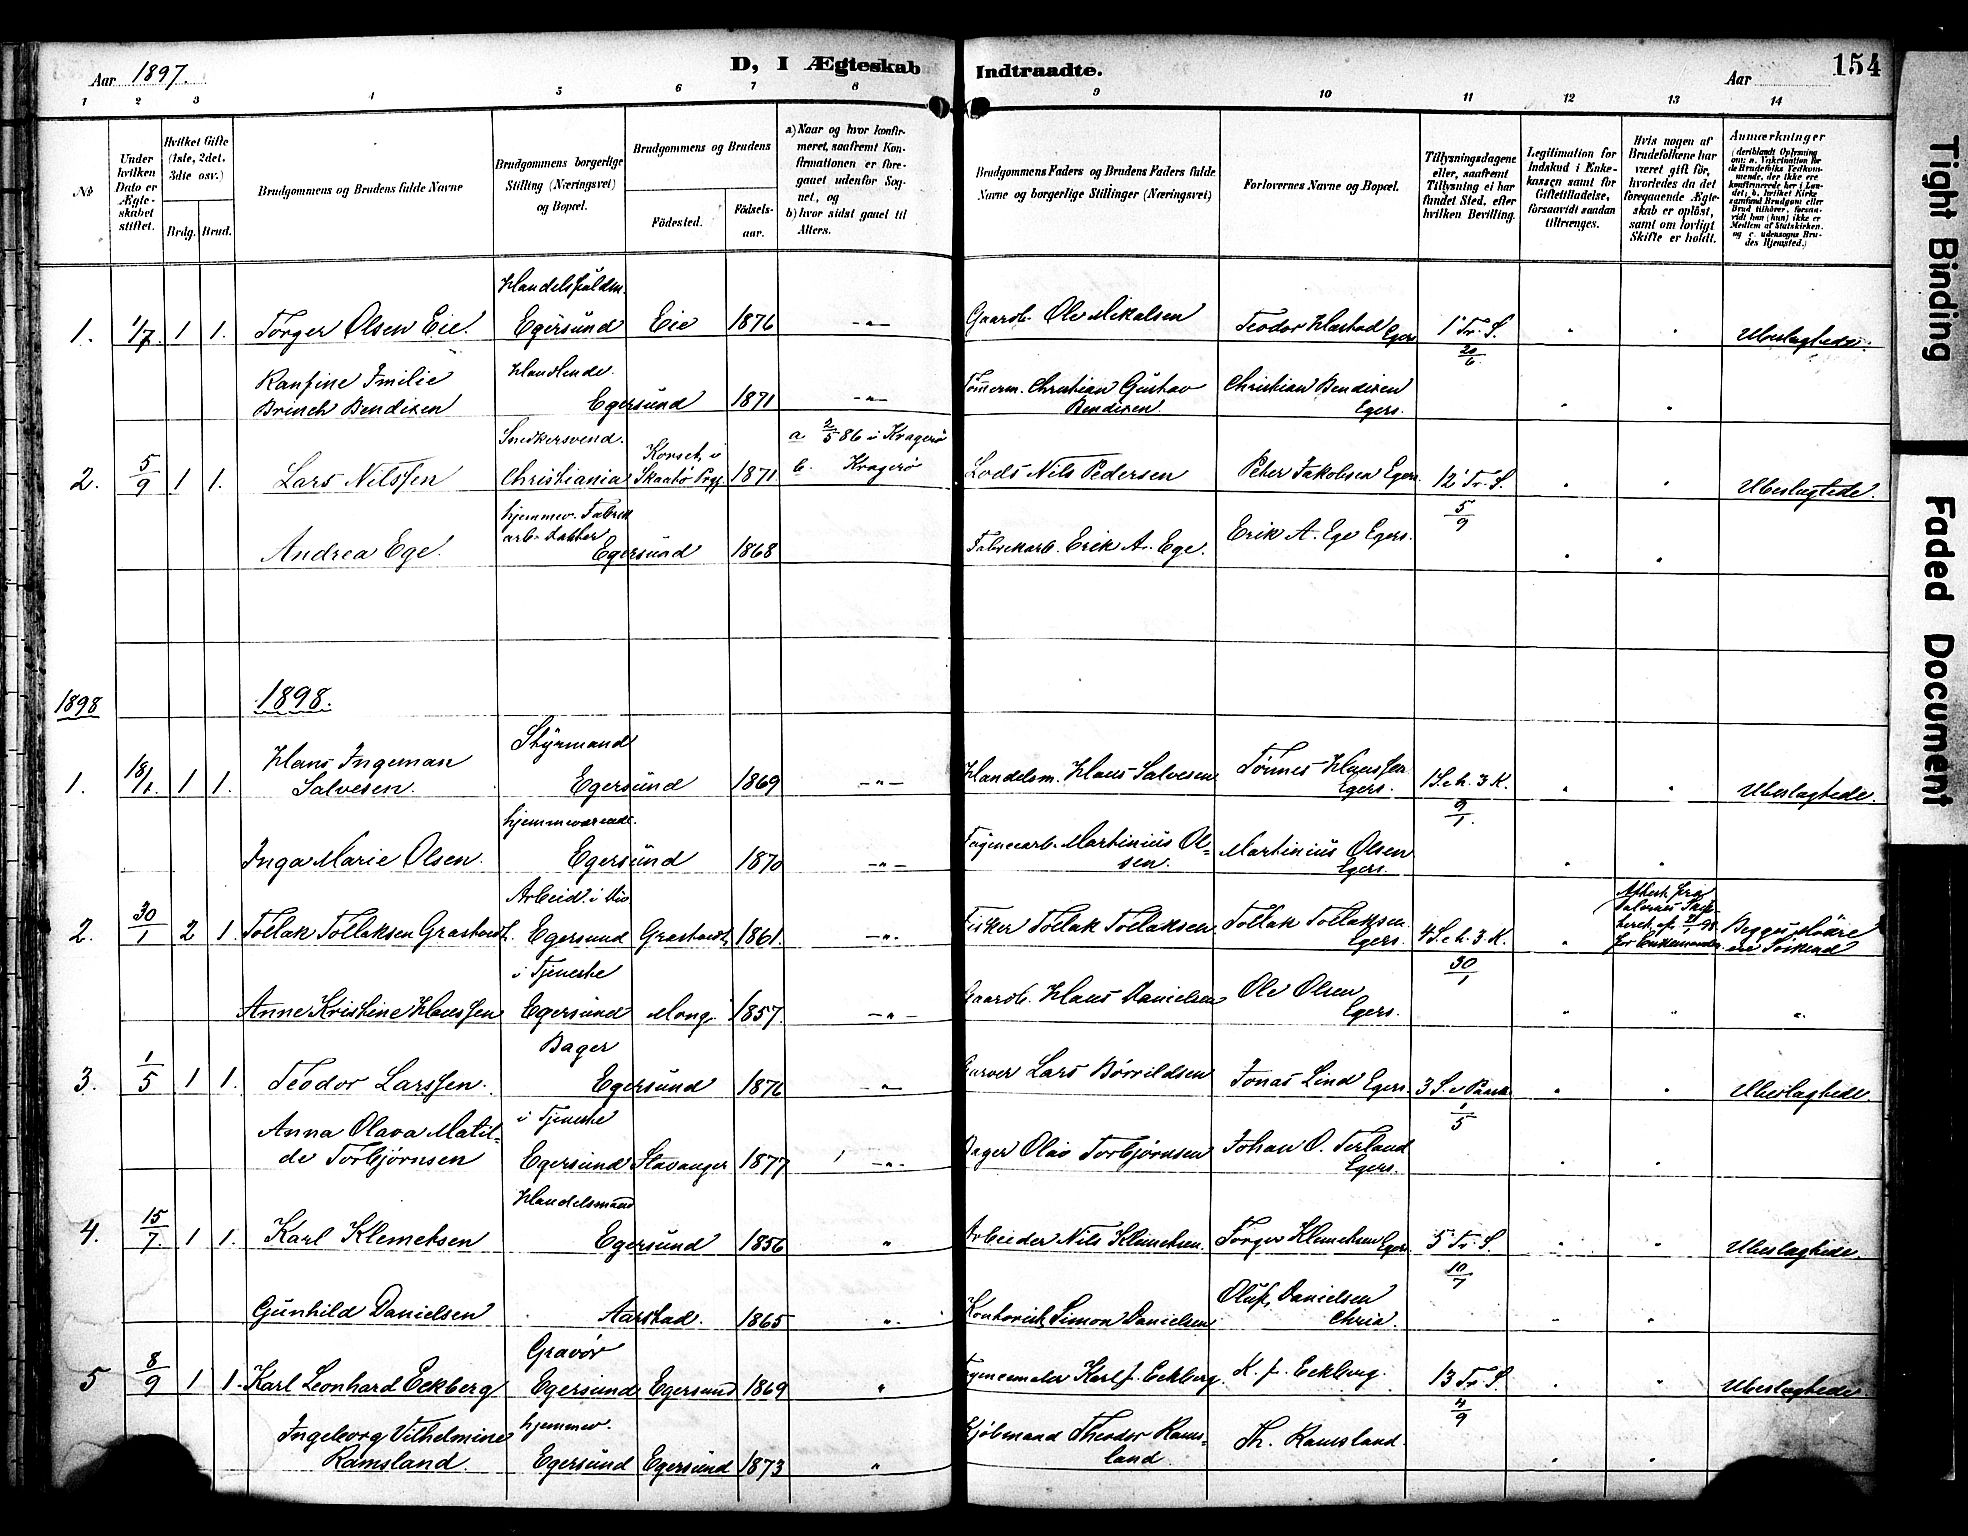 Aar 1897.
D, I Ægteskab Indtraadte.
Aar
154
1 2 3 4 5 6 7 8 9 10 11 12 13 14
No
Under hvilken Dato er Ægteskabet stiftet.
Hvilket Gifte (1ste, 2det, 3die osv.)
Brdg. Brud.
Brudgommens og Brudens fulde Navne
Brudgommens borgerlige Stilling (Næringsvei) og Bopæl.
Brudgommens og Brudens
Födested.
Födselsaar.
a) Naar og hvor konfirmeret, saafremt Konfirmationen er foregaaet udenfor Sognet, og
b) hvor sidst gaaet til Alters.
Brudgommens Faders og Brudens Faders fulde Navne og borgerlige Stillinger (Næringsvei)
Forlovernes Navne og Bopæl.
Tillysningsdagene eller, saafremt Tillysning ei har fundet Sted, efter hvilken Bevilling.
Legitimation for Indskud i Enkekassen samt for Giftetilladelse, forsaavidt saadan tiltrænges.
Hvis nogen af Brudefolkene har været gift før, hvorledes da det foregaaende Ægteskab er opløst, samt om lovligt Skifte er holdt.
Anmærkninger
1. 1/7 1 1. Torger Olsen Eie. Egersund Eie 1876 -"- Gaardb. Ole Mikalsen Teodor Hæstad Egers 1' Tr. S. 20/6 " " Ubeslægtede.
Ranfine Emilie Brinch Bendixen Handlende. Egersund 1871 -"- Tømerm. Christian Gustav Bendixen. Christian Bendixen Egers. " "
2. 5/9 1 1. Lars Nilssen Snedkersvend. Christiania Skaatø 1871 a 2/5 86 i Kragerø b. Kragerø Lods Nils Pedersen Peter Jakobsen Egers 12' Tr. S. 5/9 " " Ubeslægtede.
Andrea Ege. hjemmev. Fabrikarb. Datter Egersund 1868 Fabrikarb. Erik A. Ege. Erik A. Ege Egers. " "
1898 1898.
1. 18/1 1 1. Hans Ingeman Salvesen. Styrmand Egersund 1869 -"- Handelsm. Hans Salvesen Tønnes Hanssen Egers. 1 S. e. h. 3 K. 9/1 " " Ubeslægtede.
Inga Marie Olsen. hjemmeværende. Egersund 1870 -"- Martinius Olsen. Martinius Olsen Egers. " "
2. 30/1 2 1. Tollak Tollaksen Arbeid. Egersund 1861. -"- Fisker Tollak Tollaksen Tollak Tollaksen Egers. 4 S. e. h. 3 K. 30/1 "
Anne Kristine Hanssen i Tjeneste Egersund Mong. 1857. -"- Gaardb. Hans Danielsen Ole Olsen Egers. " " "
3. 1/5 1 1. Teodor Larssen. Bager Egersund 1876 -"- Garver Lars Børrildsen Jonas Lind Egers. 3 S. e Paask 1/5 " " Ubeslægtede.
Anna Olava Matilde Torbjørnsen i Tjeneste Egersund Stavanger 1877 -"- Bager Olav Torbjørnsen Johan O. Terland Egers. " "
4. 15/7. 1 1. Karl Klemetsen Handelsmand Egersund 1856 " Arbeider Nils Klemetsen. Torger Klemetsen Egers 5 Tr. S. 10/7 " " Ubeslægtede.
Gunhild Danielsen Aarstad. 1865 " Simon Danielsen Oluf Danielsen Chria. " "
5 8/9 1 1. Karl Leonhard Eckberg Gravør Egersund Egersund 1869 " Karl J. Eckberg K. J. Eckberg. 13 Tr. S. 4/9 " " Ubeslægtede.
Ingeborg Vilhelmine Ramsland. hjemmev. Egersund Egersund 1873 " Kjøbmand Theodor Ramsland Th. Ramsland. " "
Tight Binding
Faded Document